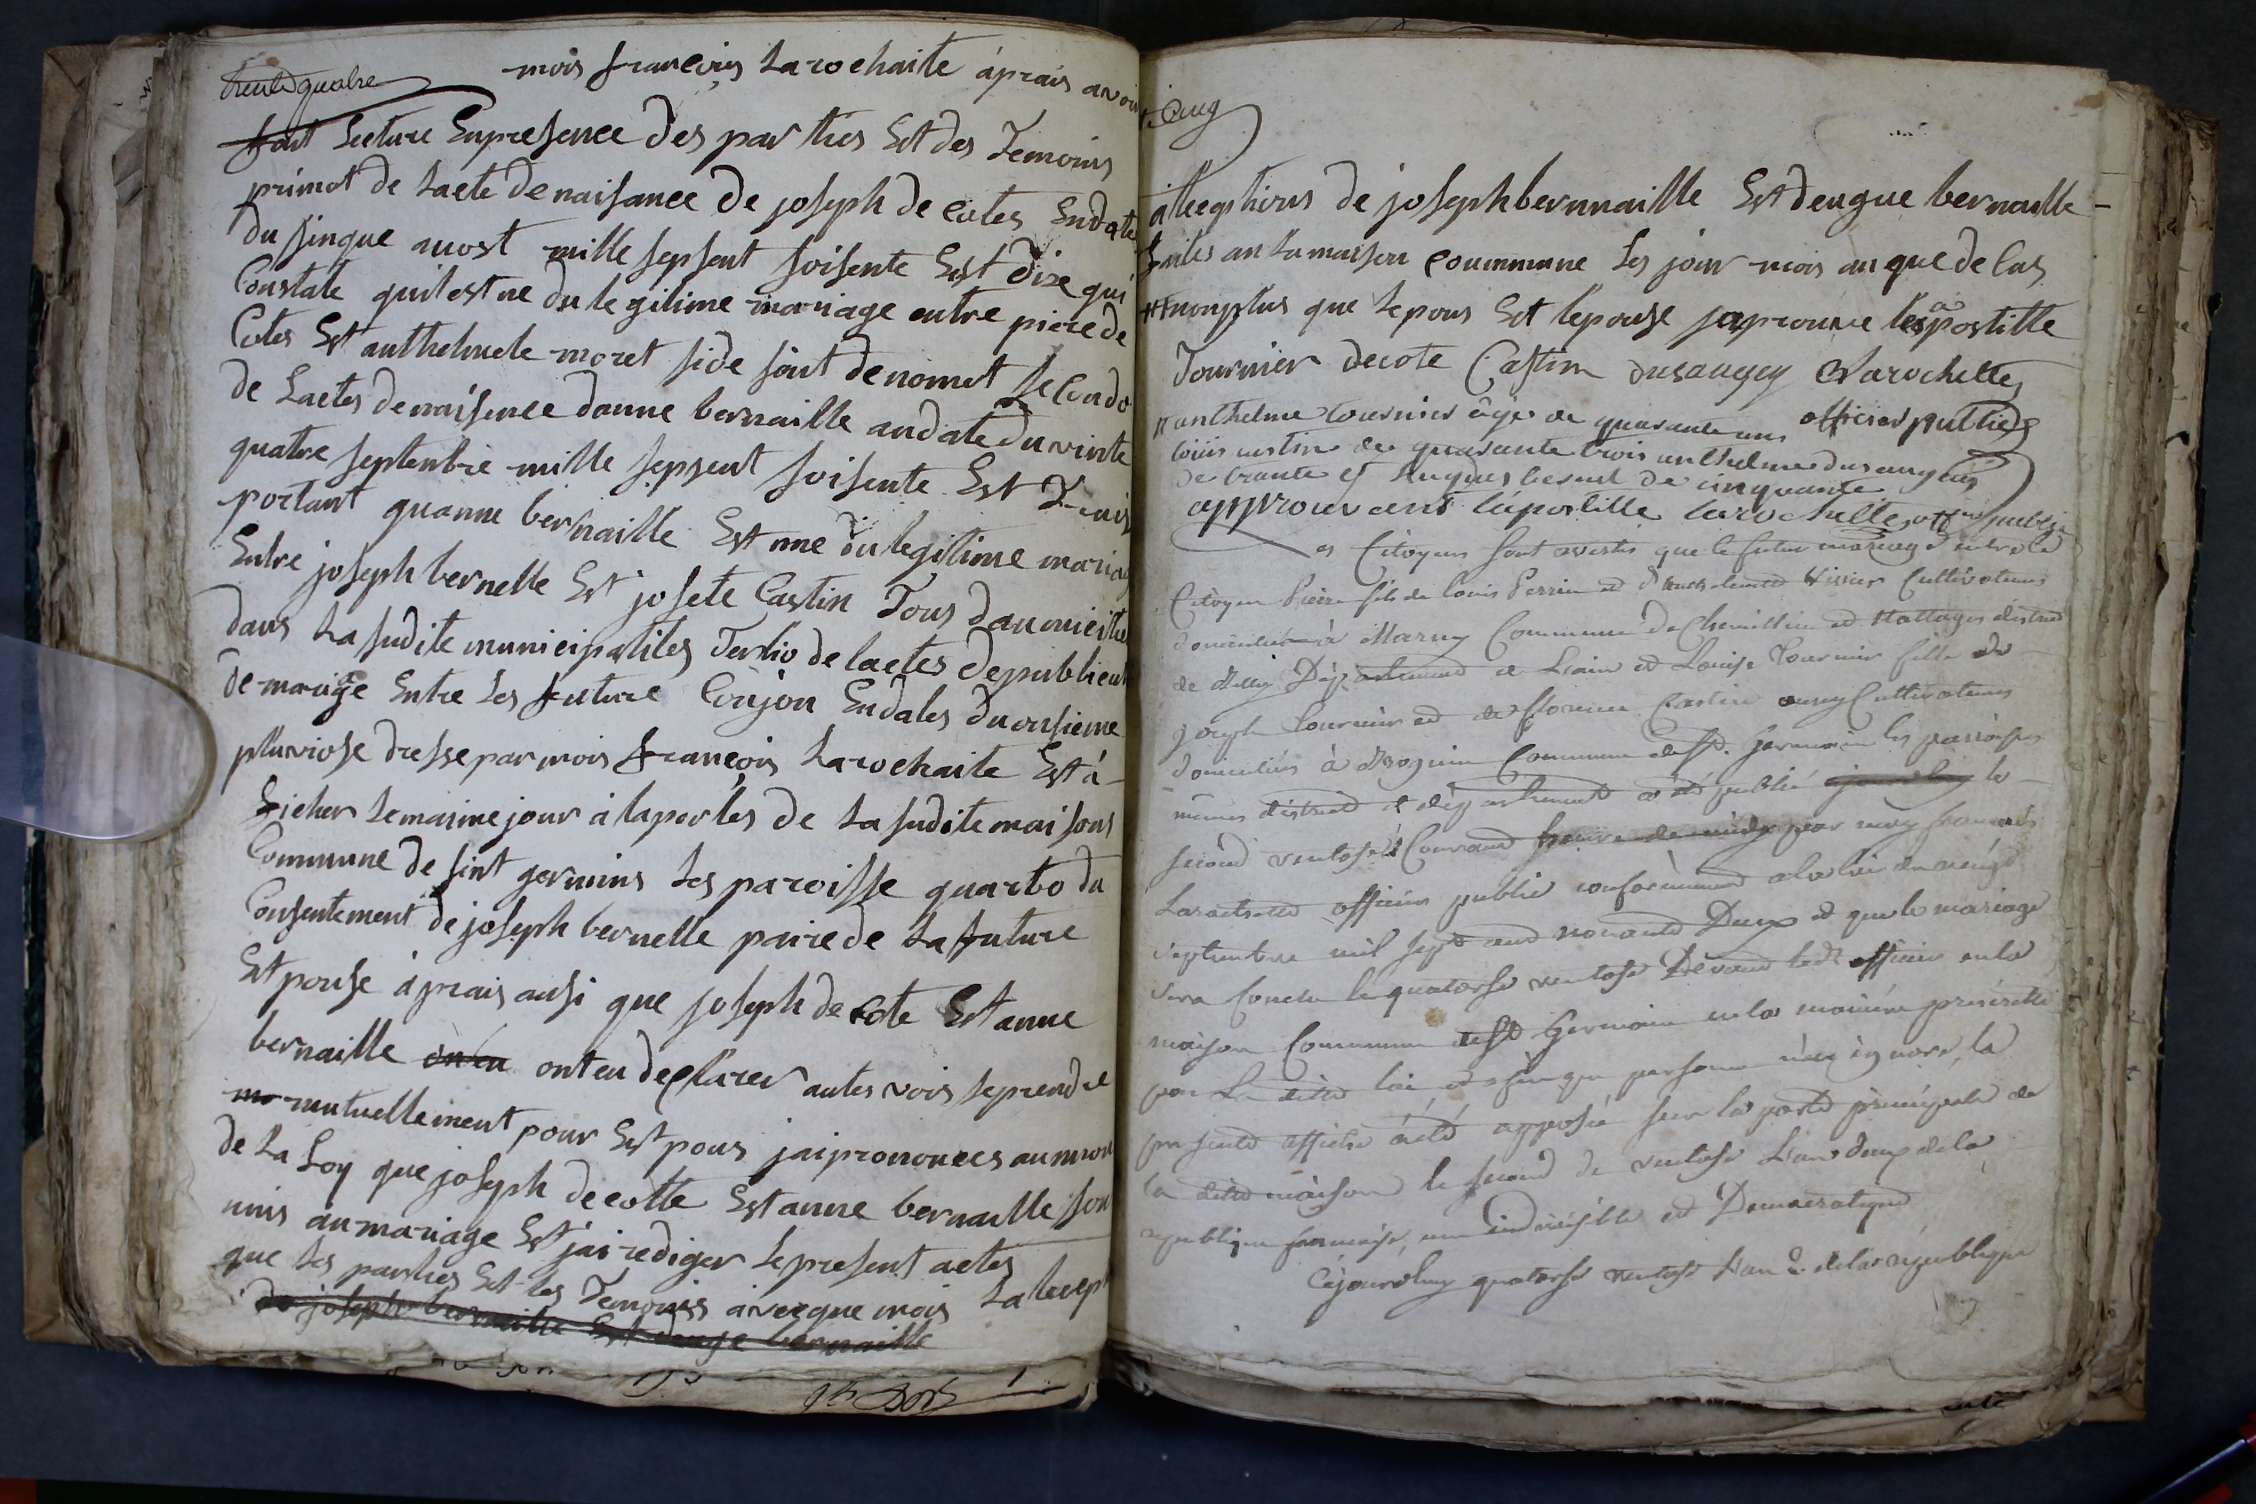 trente quatre
mois francois Larochaite áprais avoir
fait Lecture Enpresence des parties Est des Temoins
primot de Lacte de naisance de joseph de cotes Endate
du sinque auost mille sepsent soisente Est dixe qui
Constate quil est ne du legitime mariage entre piere de
Cotes Est anthelmete moret side sont denomet secondo
de Lactes de naisence danne bernaille andate du vinte
quatre septenbre mille sepsent soisente Est Trois
portant quanne bernaille Est nne du legitime mariag
Entre joseph bernelle Est josete Castin Tous daumicilie
dans La sudite municipalites Tertio de lactes de publicat
de mariage Entre Les future Conjon Endates du onsieme
pluviose dresse par mois francois Larochaite Est á
ficher Le maime jour á la portes de La sudite maisons
Commune de sint germins Les paroisse quarto du
Consentement de joseph bernelle paire de La future
Est pouse áprais ausi que joseph de cote Est anne
bernaille ont eu declarer autes vois seprendre
mutuellement pour Est pous jai prononces aunnom
de La Loy que joseph de cotte Est anne bernaille son
unis an mariage Est jai rediger Le present actes
que Les parties Est Les Temoins avecque mois La lecept
de joseph bernaille Est dauge bernaille
allecptions de joseph bernnaille Est deugue bernaille
faites an La maison coummune Les jour mois an que de lus
non plus que Lepous Est lepouse japrouve les apostille
Tournier decote Castin dusaugey Larochette
anthelme tournier âgé de quarante ans officier publicq
louis castin de quarante trois anthelme dusaugey
de trante et de cinquante
approuvant lapostille larochette off public
es Citoyens sont avertis que le futur mariage entre le
Citoyen Pierre fils de louis Perrin et d'anthelmette Vissier Cultivateurs
domiciliés à Marny Commune de Chemillin et Nattages district
de Belley Département de L'ain et Louise Tournier fille de
joseph Tournier et de florence Castin aussy Cultivateurs
domiciliés à Brognin Commune de St. Germain les paroisses
mêmes district et département a été publié le
second ventose Courant par moy francois
Larochette officier public conformément a la loi du vingt
septembre mil sept cent nonante Deux et que le mariage
sera Conclu le quatorse ventose Devant ledt officier en la
maison Commune de St Germain en la manière préscritte
par La ditte loi, et afin que personne n'en ignore, la
presente affiche a été apposée sur la porte principale de
la ditte maison le second de ventose L'an deux de la
republique francaise, une indivisible et Democratique
Cejourdhuy quatorse ventose L'an 2 de la république